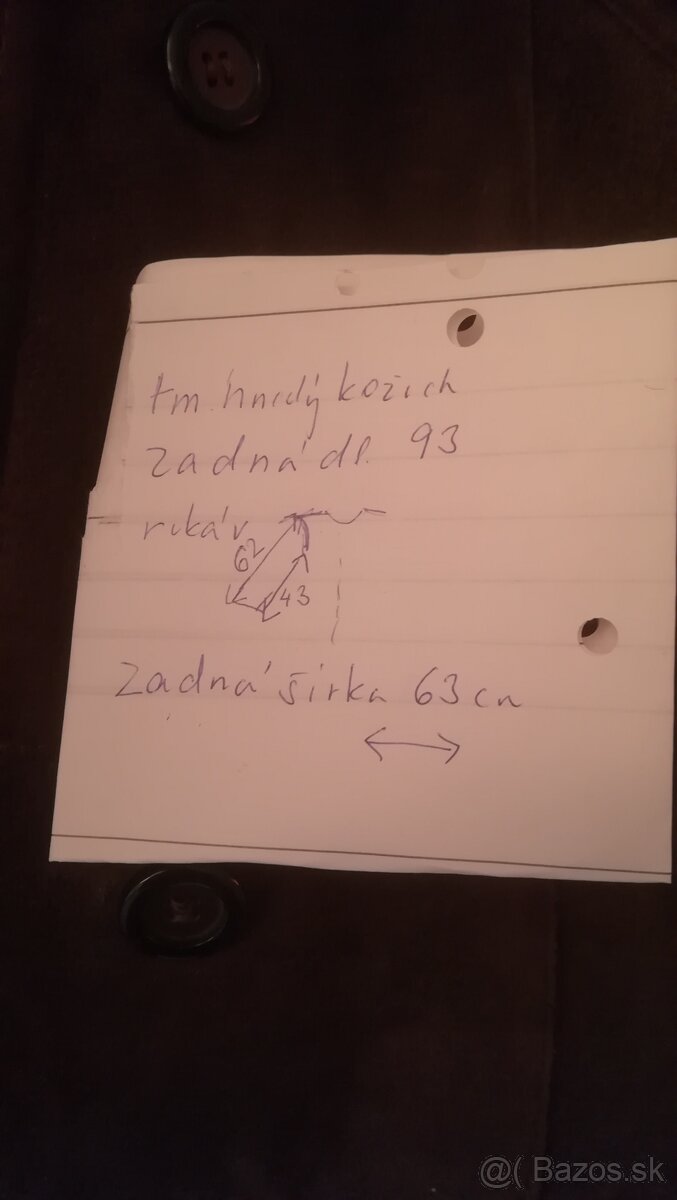 tm. hnedý kožich
zadná dl. 93
rukáv
62
43
zadná šírka 63 cm
@( Bazos.sk